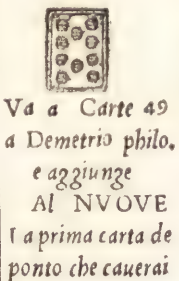 Va a Carte 49
a Demetrio philo.
e aggiunge
Al NVOVE
a prima carta de
ponto che cauerai